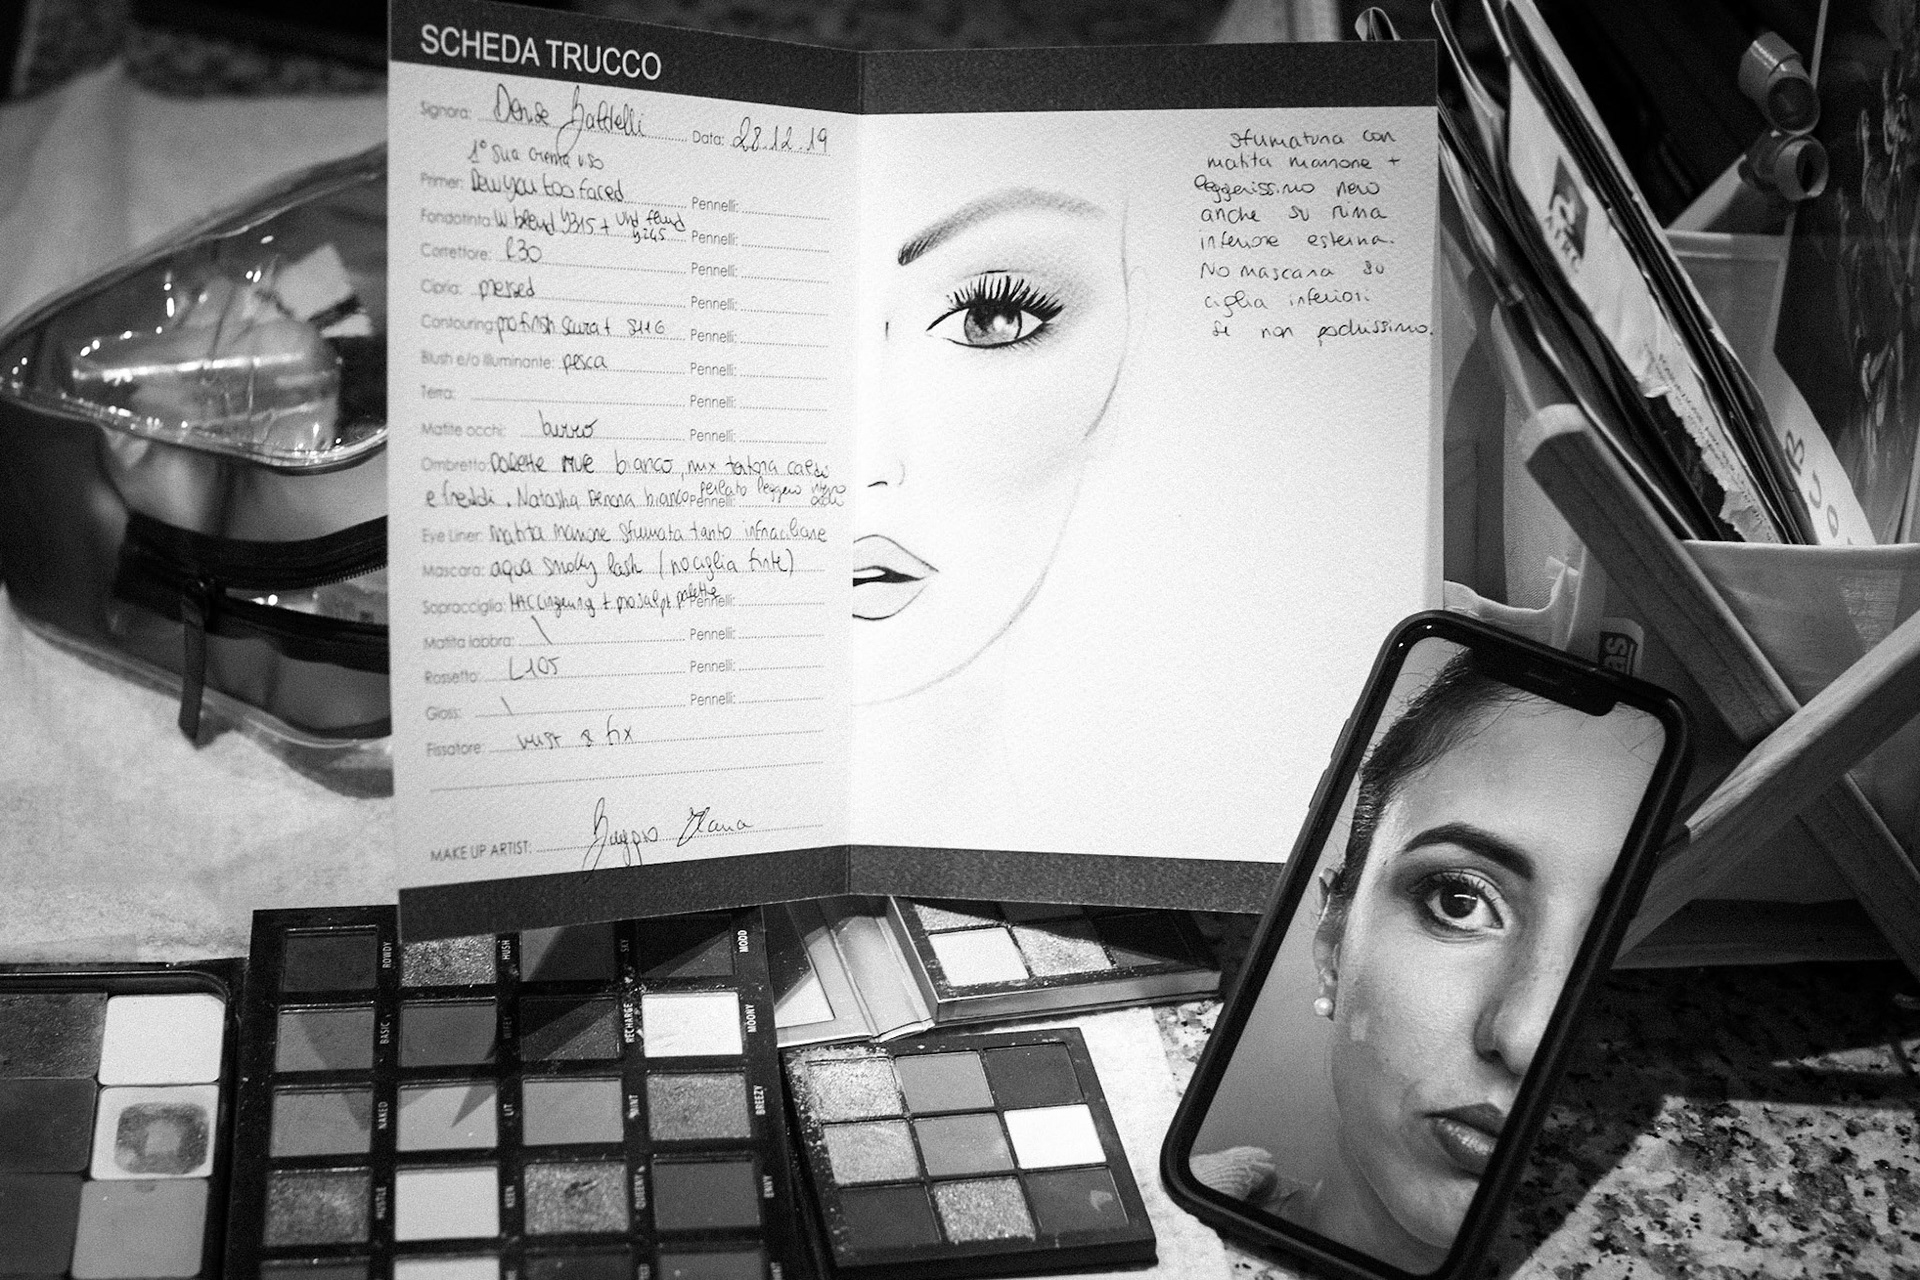 SCHEDA TRUCCO
Signora: Denise Battelli Data: 28.12.19
1° sua crema viso
Primer: Dew you too faced Pennelli:
Fondotinta: W blend Y315 + Y245 Pennelli:
Correttore: R30 Pennelli:
Cipria: pressed Pennelli:
Contouring: profinish scura + S116 Pennelli:
Blush e/o illuminante: pesca Pennelli:
Terra: Pennelli:
Matite occhi: burro Pennelli:
Ombretto: palette bianco, mix tortora caldo
e freddi. Natasha Denona bianco perlato leggero interno Pennelli:
Eye Liner: Matita marrone sfumata tanto infracigliare
Mascara: aqua smoky lash (no ciglia finte)
Sopracciglia: + palette Pennelli:
Matita labbra: \ Pennelli:
Rossetto: L105 Pennelli:
Gloss: \ Pennelli:
Fissatore: mist & fix
MAKE UP ARTIST: Baggio Ilaria
Sfumatura con
matita marrone +
leggerissimo nero
anche su rima
inferiore esterna.
No mascara su
ciglia inferiori
se non pochissimo.
ROWDY
HUSH
SKY
MODD
BASIC
RECHARGE
MOONY
NAKED
LIT
BREEZY
HUSTLE
KEEN
QUEENY
ENVY